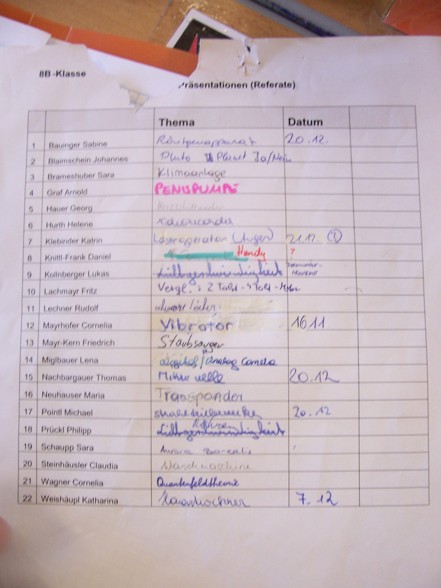 8B-Klasse
räsentationen (Referate)
Thema Datum
1 Bauinger Sabine Röntgenapparat 20.12.
2 Blaimschein Johannes Pluto Planet Ja/Nein
3 Brameshuber Sara Klimaanlage
4 Graf Arnold PENISPUMPE
5 Hauer Georg
6 Hurth Helene
7 Klebinder Katrin
8 Knittl-Frank Daniel Handy ?
9 Kolnberger Lukas
10 Lachmayr Fritz Vergl. 2 Takt - 4 Takt - Motor
11 Lechner Rudolf
12 Mayrhofer Cornelia Vibrator 16.11
13 Mayr-Kern Friedrich Staubsauger
14 Miglbauer Lena digital/analog Camera
15 Nachbargauer Thomas Mikrowelle 20.12
16 Neuhauser Maria Transponder
17 Pointl Michael 20.12
18 Prückl Philipp
19 Schaupp Sara Aurora borealis
20 Steinhäusler Claudia Waschmaschine
21 Wagner Cornelia Quantenfeldtheorie
22 Weishäupl Katharina 7.12